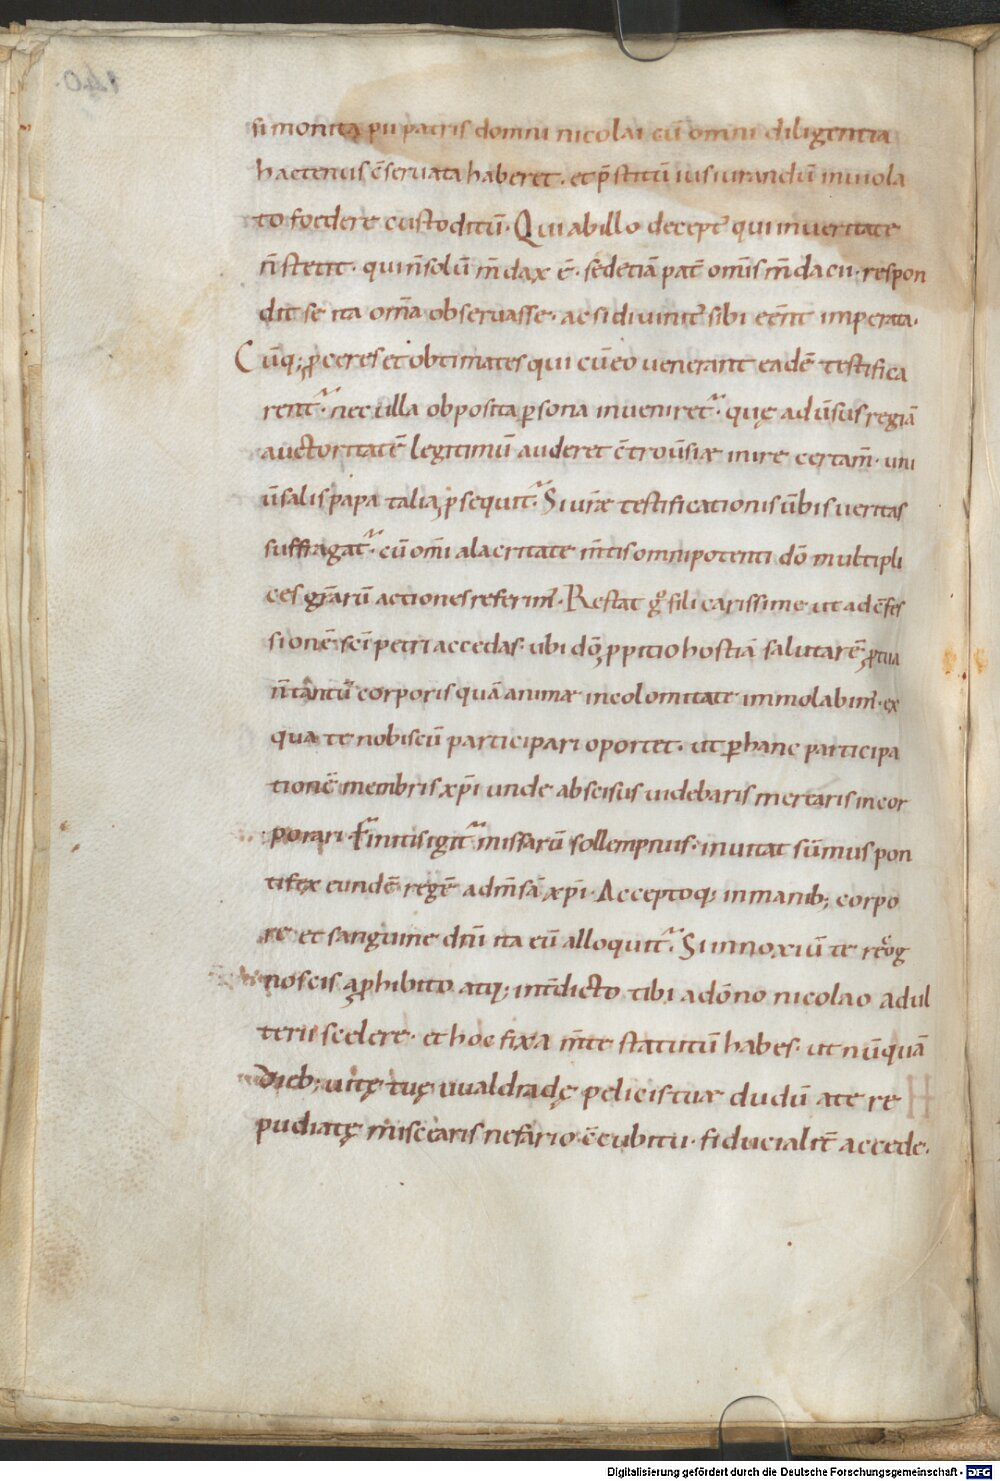 simonita pii patris domni nicolai cū omni diligentia
hactenus c̄seruata haberet · et p̄stitū iusiurandū inuiola
to foedere custoditū · Qui ab illo decept᾽ qui in ueritate
n̄ stetit · qui n̄ solū m̄dax ē · sed etiā pat̄ omīs m̄dacii · respon
dit se ita om̄a obseruasse · ac si diuinit᾽ sibi eēnt imperata ·
Cūq; ꝓceres et obtimates qui cū eo uenerant eadē testifica
rent᷑ · nec ulla obposita ꝑsona inueniret᷑ · quę aduersus regiā
auctoritatē legitimū auderet c̄trouersiae inire certam̄ · uni
ūsalis papa talia ꝓsequit᷑ · Si ur̄ae testificationis ūbis ueritas
suffragat᷑ · cū om̄i alacritate m̄tis omnipotenti dō multipli
ces gr̄arū actiones referim᾽ · Restat gͦ fili carissime ut ad c̄fes
sionē sc̄i petri accedas · ubi dō ꝓpitio hostiā salutarē ꝓ tua
n̄ tantū corporis quā animae incolomitate immolabim᾽ · ex
qua te nobiscū participari oportet · ut ꝑ hanc participa
tionē membris xp̄i unde abscisus uidebaris mertaris incor
porari · Finitis igit᷑ missarū sollempniis · inuitat sūmus pon
tifex eundē regē ad m̄sā xp̄i · Acceptoq; in manib; corpo
re et sanguine dn̄i ita eū alloquit᷑ · Si innoxiū te recog
noscis a ꝓhibito atq; int̄dicto tibi a dōno nicolao adul
terii scelere · et hoc fixa m̄te statutū habes · ut nūquā
dieb; uitę tuę uualdradę pelicis tuae dudū a te re
pudiatę miscearis nefario c̄cubitu · fiducialit̄ accede ·
H
140
Digitalisierung gefördert durch die Deutsche Forschungsgemeinschaft - DFG